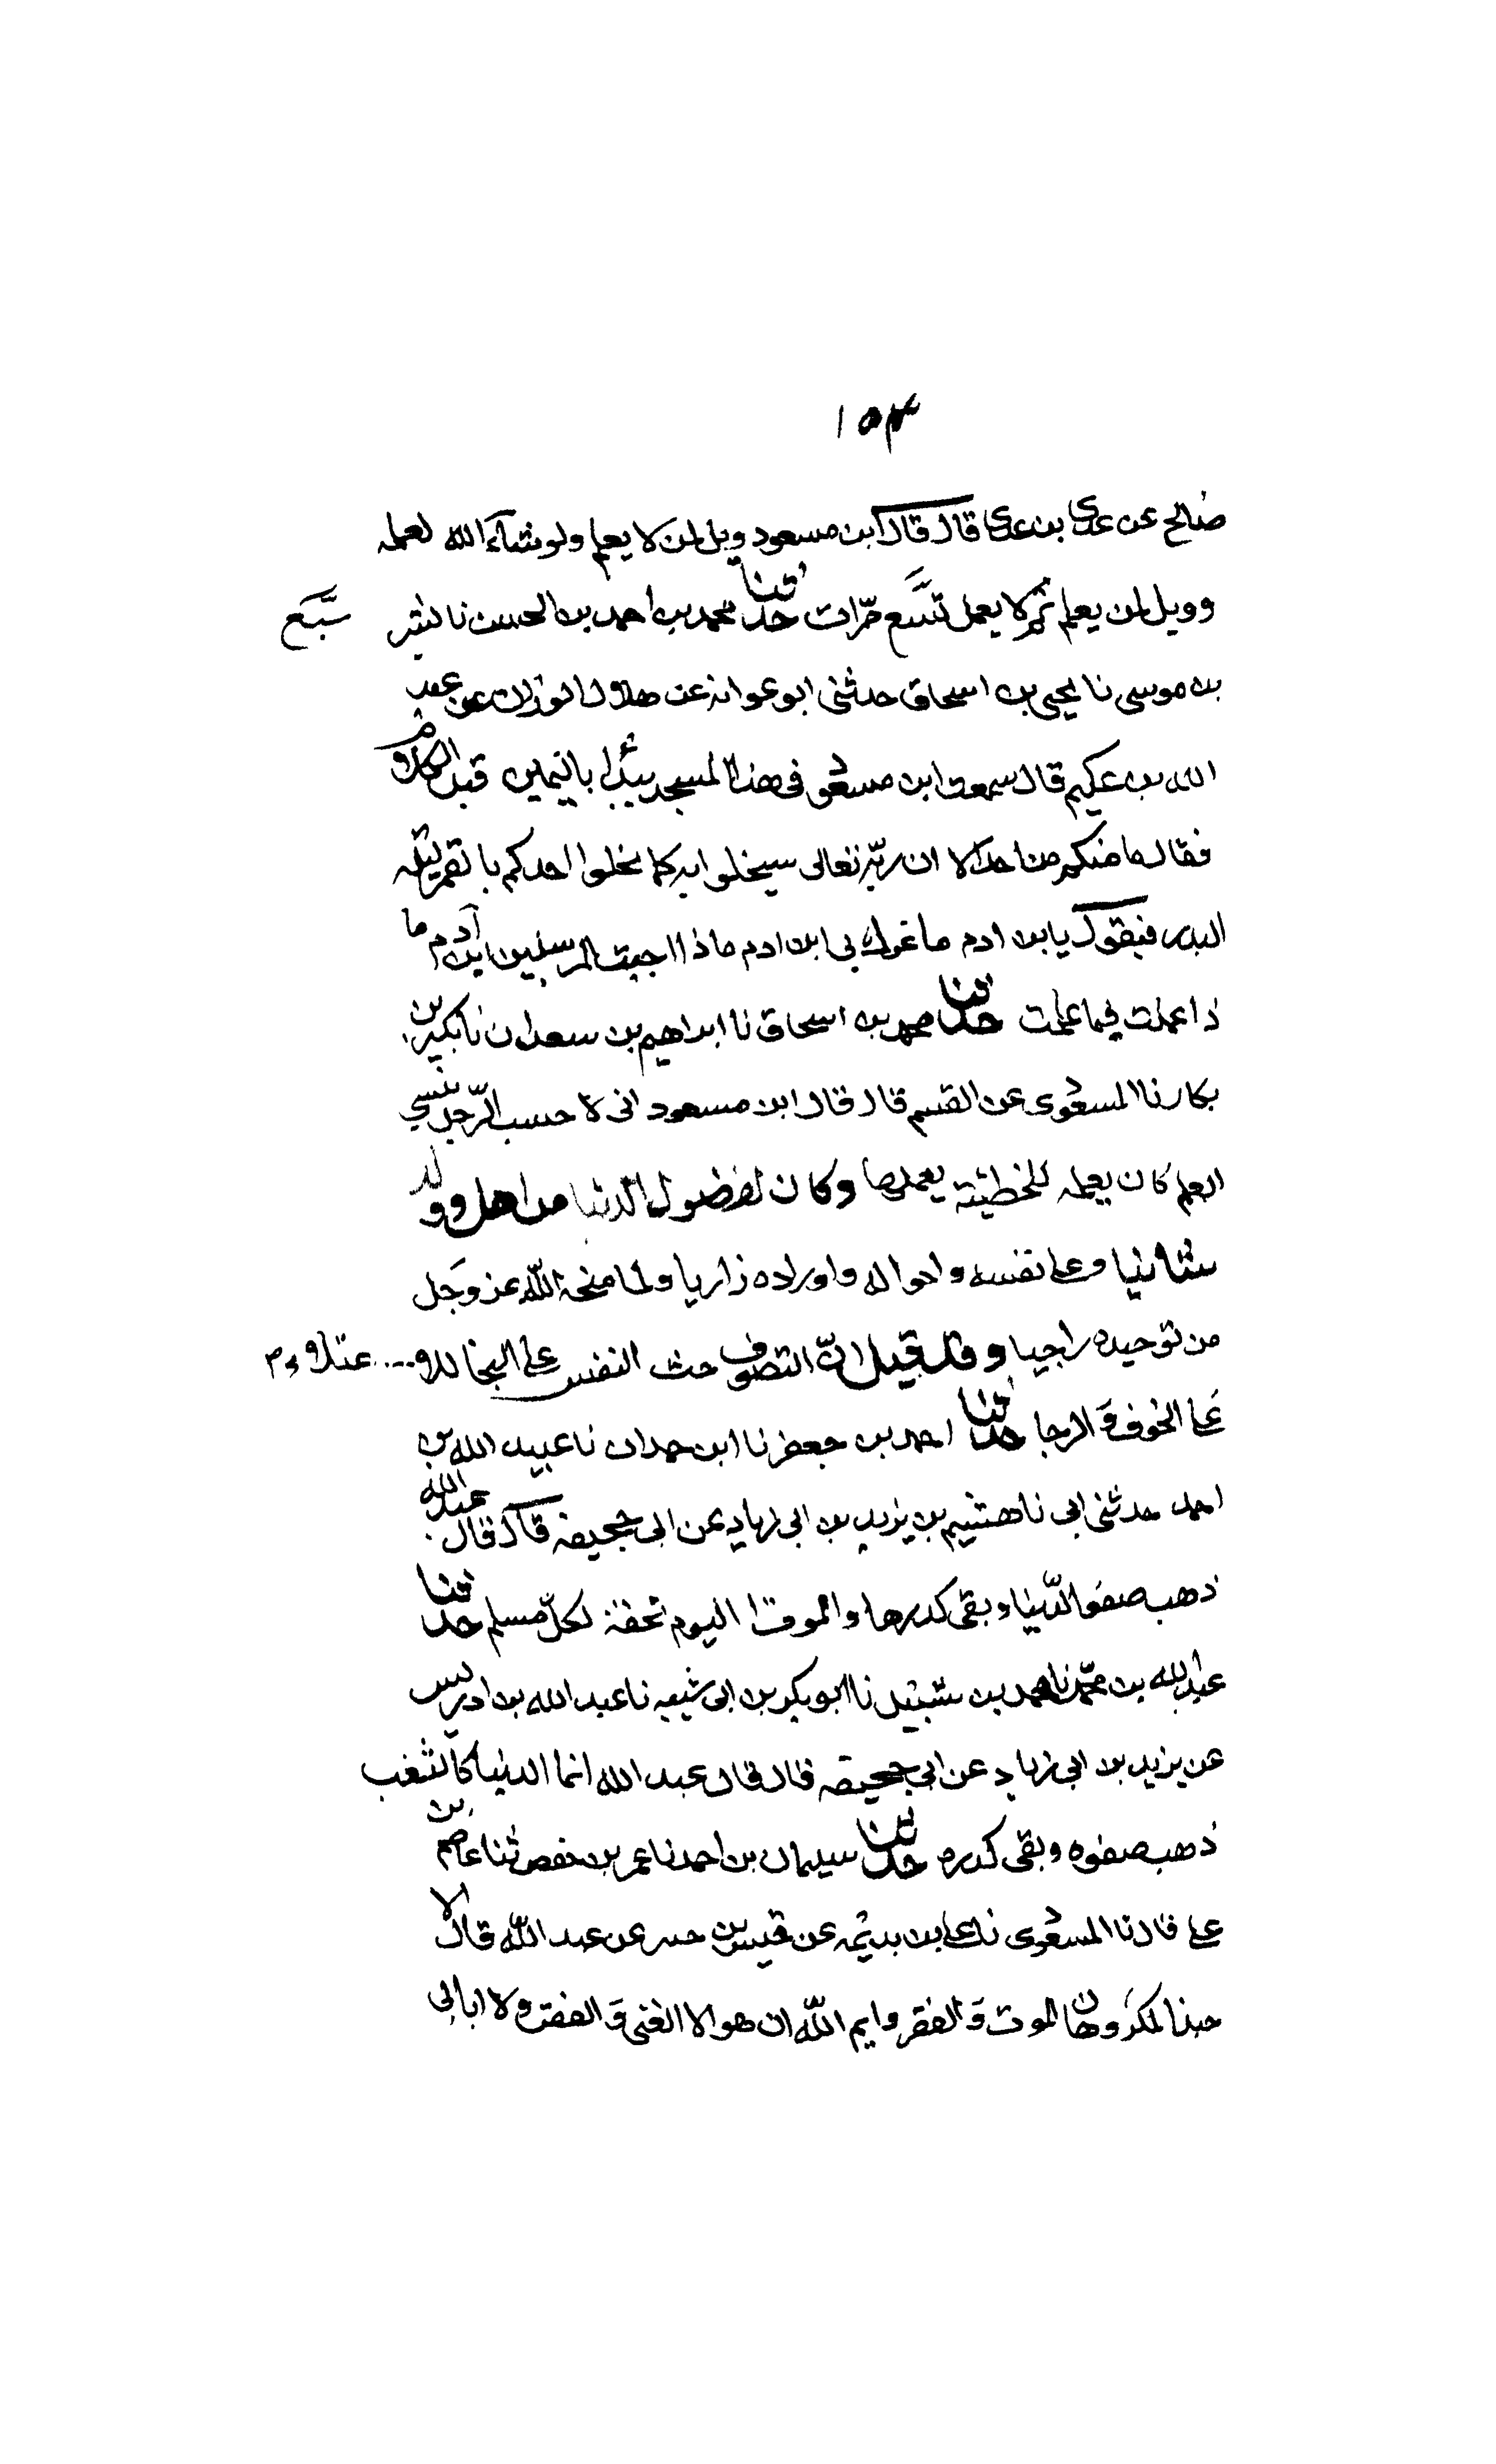 ١٥٤
صالح عن عدى بن عدى قال قال ابن مسعود ويل لمن لا يعلم ولو شآء الله لعلمه
وويل لمن يعلم ثم لا يعمل تسع مرّات حدثنا محمد بن احمد بن الحسن نا بشر سبع
بن موسى نا يحيى بن اسحاق حدثنى ابو عوانه عن هلال الوزان عن عبد
الله بن عكيم قال سمعت ابن مسعود فى هذا المسجد يبدأ باليمين قبل الكلام
فقال ما منكم من احد الا ان ربّه تعالى سيخلوا به كما يخلوا احدكم بالقمر ليلة
البدر فيقول يا بن ادم ما غرك بي ابن ادم ماذا اجبت المرسلين ابن آدم ما
ذا عملت فيما علمت حدثنا محمد بن اسحاق نا ابراهيم بن سعدان نا بكر بن
بكار نا المسعودى عن القسم قال قال ابن مسعود انى لاحسب الرّجل ينسي
العلم كان يعلمه للخطيئة يعملها وكان لفضول الدنيا من اهل وولد
شانيا وعلى نفسه واحواله واوراده زاريا ولما منحه اللّه عز وجل
من توحيده راجيا وقد قيل انّ التصوف حث النفس على النجا للا... عتلاوم
على الخوف وَ الرجا حدثنا احمد بن جعفر نا ابن حمدان نا عبيد الله بن
احمد حدثنى ابى نا هشيم بن يزيد بن ابى زياد عن ابى جحيفه قال قال عبد الله
ذهب صفو الدّنيا وبقى كدرها والموت اليوم تحفة لكلّ مسلم حدثنا
عبد الله بن محمّد نا محمد بن شبيل نا ابو بكر بن ابى شيبه نا عبد الله بن ادريس
عن يزيد بن ابى زياد عن ابى جحيفه قال قال عبد الله انما الدنيا كالثغب
ذهب صفوه وبقى كدره حدثنا سليمان بن احمد نا عمر بن حفص ثنا عاصم بن
على قال نا المسعودى نا على بن بديمه عن قيس بن حبر عن عبد اللّه قال الا
حبذا المكروهان الموت وَ الفقر وايم اللّه ان هو الا الغنى وَ الفقر ولا ابالى